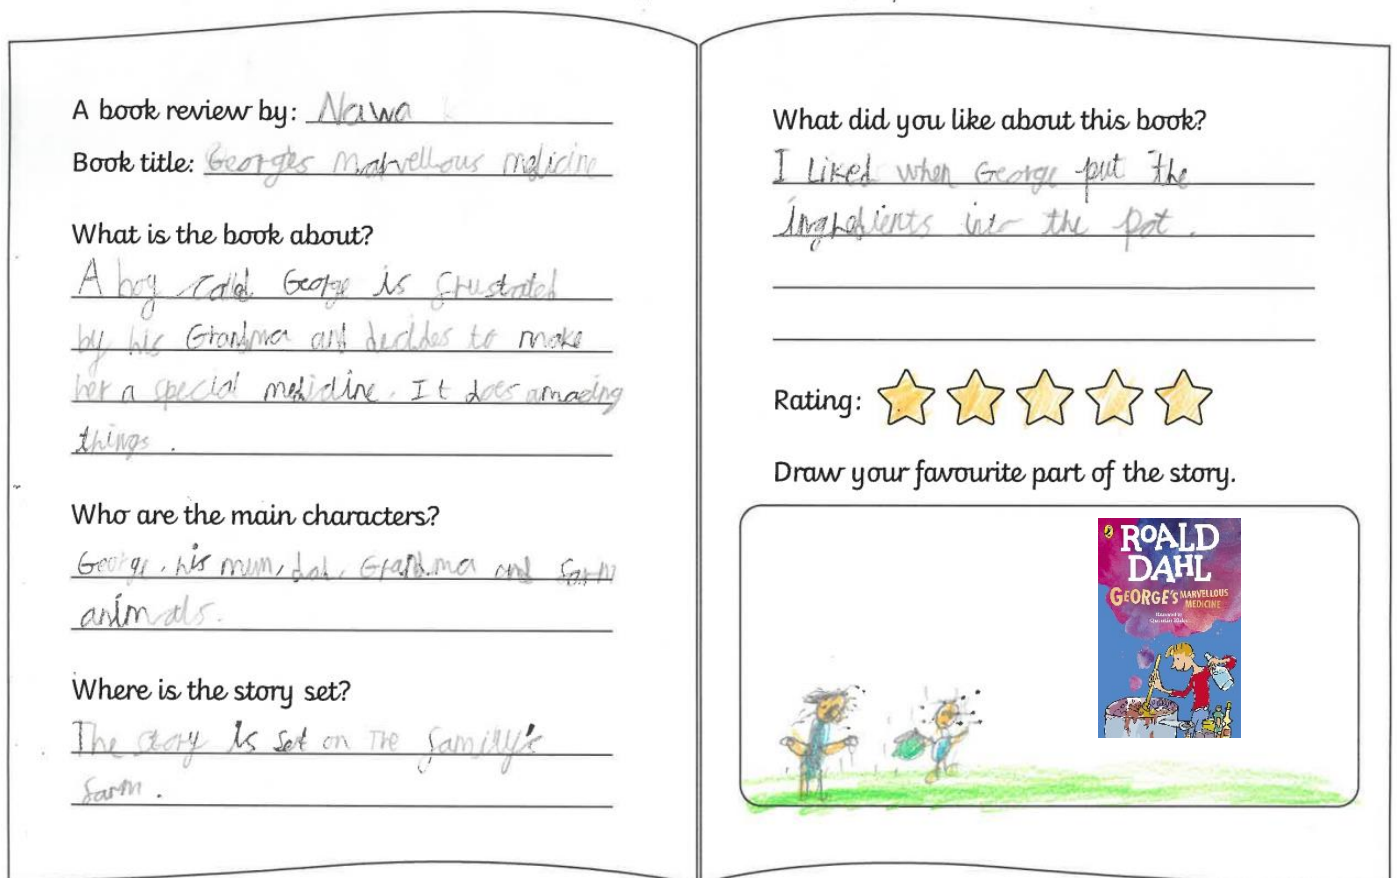 A book review by: Nawa
Book title: Georges marvellous medicine
What is the book about?
A boy called George is frustrated
by his Grandma and decides to make
her a special medicine. It does amazing
things .
Who are the main characters?
George, his mum, dad, Grandma and farm
animals.
Where is the story set?
The story is set on The family's
farm .
What did you like about this book?
I Liked when George put the
ingredients into the pot .
Rating:
Draw your favourite part of the story.
ROALD
DAHL
GEORGE'S MARVELLOUS
MEDICINE
Illustrated by
Quentin Blake